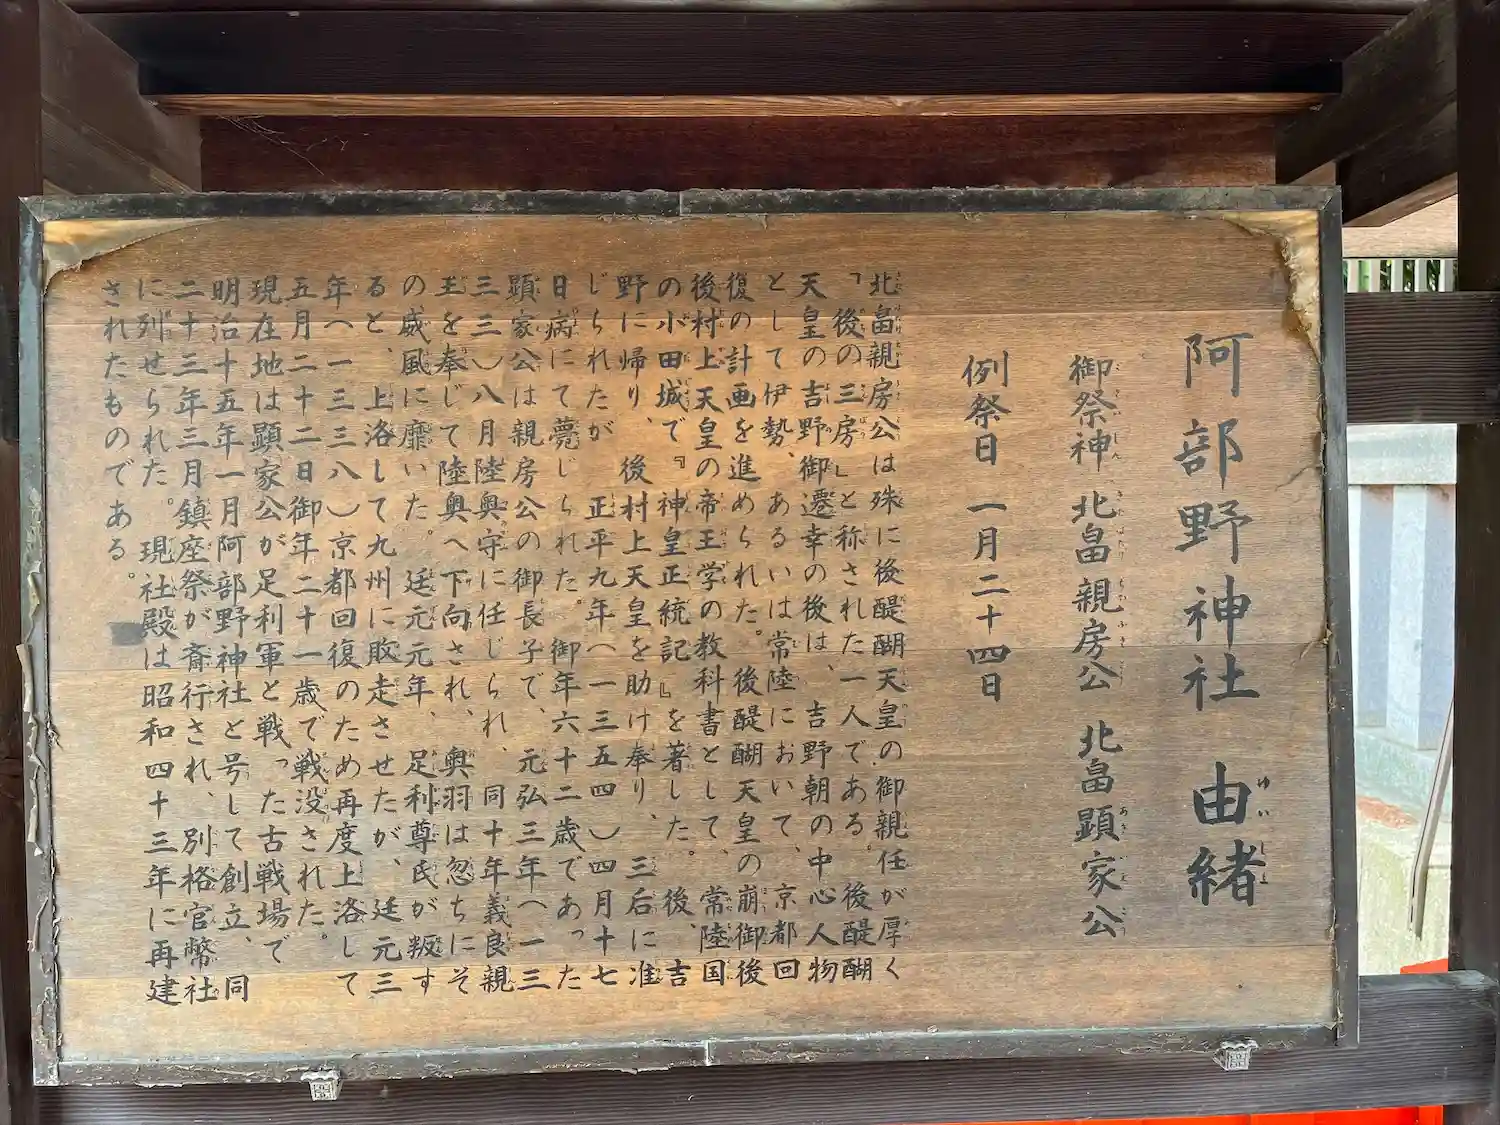 阿部野神社 由緒
御祭神 北畠親房公 北畠顕家公
例祭日 一月二十四日
北畠親房公は殊に後醍醐天皇の御親任が厚く
『後の三房』と称された一人である。後醍醐
天皇の吉野御遷幸の後は、吉野朝の中心人物
として伊勢、あるいは常陸において、京都回
復の計画を進められた。後醍醐天皇の崩御後
後村上天皇の帝王学の教科書として、常陸国
の小田城で『神皇正統記』を著した。後、吉
野に帰り、後村上天皇を助け奉り、三后に准
じられたが 正平九年(一三五四)四月十七
日病にて薨じられた。御年六十二歳であった
顕家公は親房公の御長子で、元弘三年(一三
三三)八月陸奥守に任じられ、同十年義良親
王を奉じて陸奥へ下向され、奥羽は忽ちにそ
の威風に靡いた。延元元年、足利尊氏が叛す
ると、上洛して九州に敗走させたが、延元三
年(一三三八)京都回復のため再度上洛して
五月二十二日御年二十一歳で戦没された。
現在地は顕家公が足利軍と戦った古戦場で
明治十五年一月阿部野神社と号して創立、同
二十三年三月鎮座祭が斎行され、別格官幣社
に列せられた。現社殿は昭和四十三年に再建
されたものである。